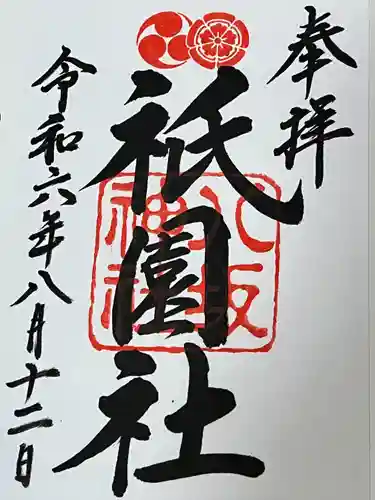 奉拝
祇園社
八坂神社
令和六年八月十二日